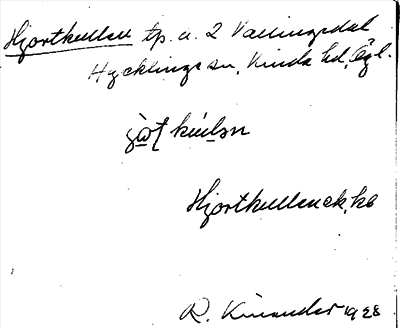 Hjortkullen tp. u. 2 Vällingsdal
Hycklinge sn, Kinda hd, Ögl.
Hjortkullen ek. kb
R. Kinander 1928